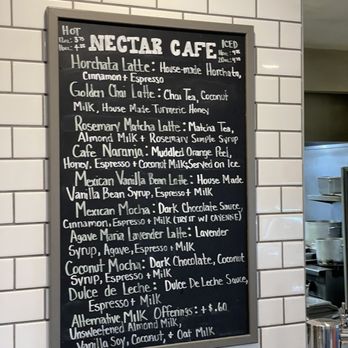 HOT
12oz: 3.75
NECTAR CAFE
ICED
Horchata Latte: House-made Horchata,
Cinnamon + Espresso
Golden Chai Latte: Chai Tea, Coconut
Milk, House Made Turmeric Honey
Rosemary Matcha Latte: Matcha Tea,
Almond Milk + Rosemary Simple Syrup
Cafe Naranjo: Muddled Orange Peel,
Honey, Espresso + Coconut Milk; Served On Ice
Mexican Vanilla Bean Latte: House Made
Vanilla Bean Syrup, Espresso + Milk
Mexican Mocha: Dark Chocolate Sauce,
Cinnamon, Espresso + Milk (TRY IT W/ CAYENNE)
Agave Maria Lavender Latte: Lavender
Syrup, Agave, Espresso + Milk
Coconut Mocha: Dark Chocolate, Coconut
Syrup, Espresso + Milk
Dulce de Leche: Dulce De Leche Sauce,
Espresso + Milk
Alternative Milk Offerings: + $.60
Unsweetened Almond Milk,
Vanilla Soy, Coconut, + Oat Milk